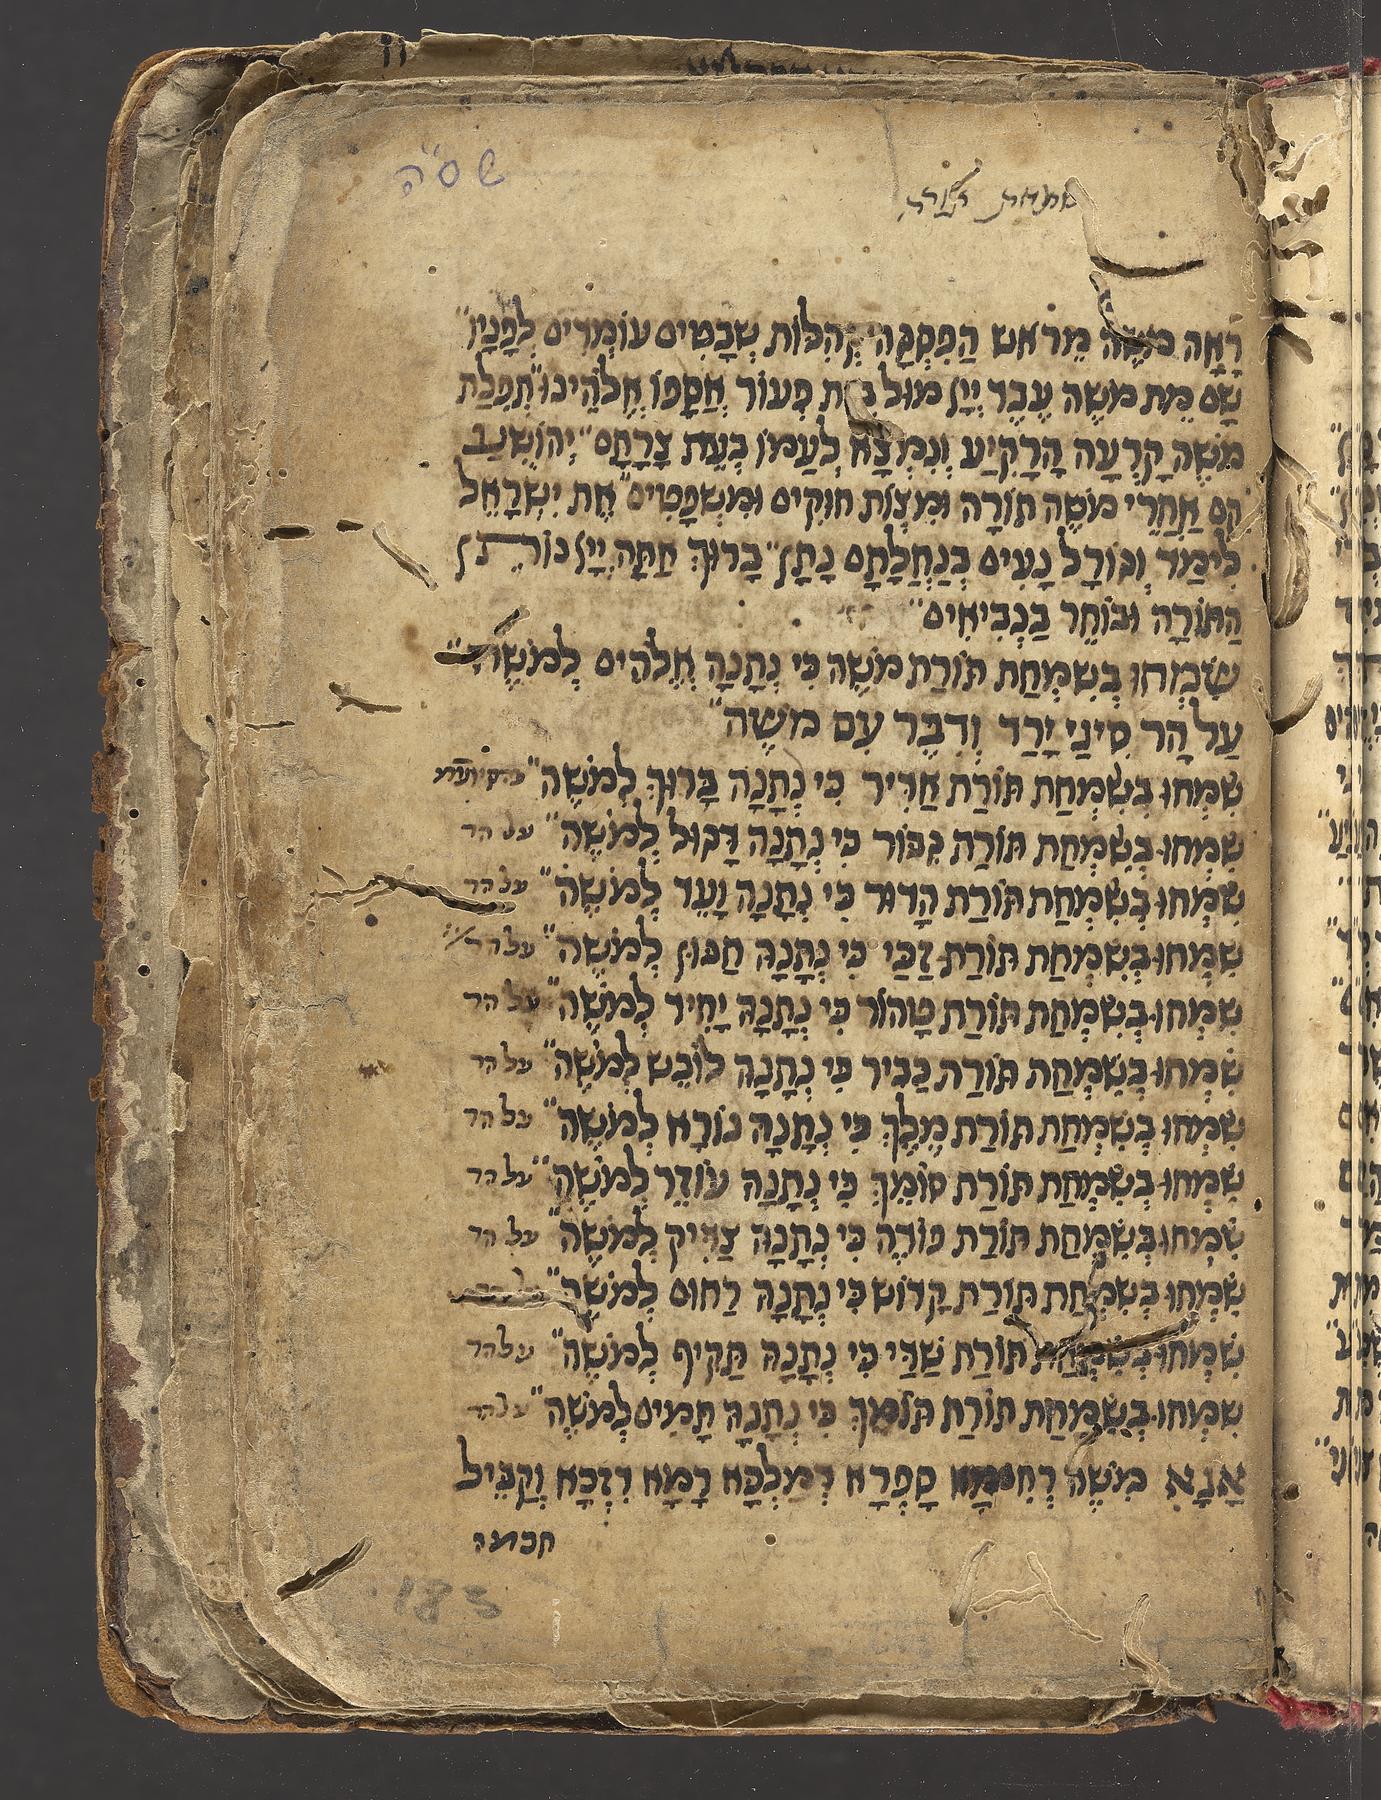 שס"ה
שמחת תורה
רָאָה מֹשֶׁה מֵרֹאשׁ הַפִּסְגָּה" קְהִלּוֹת שְׁבָטִים עוֹמְדִים לְפָנָיו"
שָׁם מֵת מֹשֶׁה עֶבֶד יְיָ מוּל בֵּית פְּעוֹר אֲסָפוֹ אֱלֹהֵינוּ" תְּפִלַּת
מֹשֶׁה קָרְעָה הָרָקִיעַ וְנִמְצָא לְעַמּוֹ בְּעֵת צָרָתָם" יְהוֹשֻׁעַ
קָם אַחֲרֵי מֹשֶׁה תּוֹרָה וּמִצְוֹת חוּקִים וּמִשְׁפָּטִים" אֶת יִשְׂרָאֵל
לִימַּד וְגוֹרָל נָעִים בְּנַחֲלָתָם נָתַן" בָּרוּךְ אַתָּה יְיָ נוֹתֵן
הַתּוֹרָה וּבוֹחֵר בַּנְּבִיאִים"
שִׂמְחוּ בְּשִׂמְחַת תּוֹרַת מֹשֶׁה כִּי נְתָנָהּ אֱלֹהִים לְמֹשֶׁה"
עַל הַר סִינַי יָרַד וְדִבֶּר עִם מֹשֶׁה"
שִׂמְחוּ בְּשִׂמְחַת תּוֹרַת אַדִּיר כִּי נְתָנָהּ בָּרוּךְ לְמֹשֶׁה"
שִׂמְחוּ בְּשִׂמְחַת תּוֹרַת גִּבּוֹר כִּי נְתָנָהּ דָּגוּל לְמֹשֶׁה" על הר
שִׂמְחוּ בְּשִׂמְחַת תּוֹרַת הָדוּר כִּי נְתָנָהּ וָעֵד לְמֹשֶׁה" על הר
שִׂמְחוּ בְּשִׂמְחַת תּוֹרַת זַכַּי כִּי נְתָנָהּ חַנּוּן לְמֹשֶׁה" על הר
שִׂמְחוּ בְּשִׂמְחַת תּוֹרַת טָהוֹר כִּי נְתָנָהּ יָחִיד לְמֹשֶׁה" על הר
שִׂמְחוּ בְּשִׂמְחַת תּוֹרַת כַּבִּיר כִּי נְתָנָהּ לוֹבֵשׁ לְמֹשֶׁה" על הר
שִׂמְחוּ בְּשִׂמְחַת תּוֹרַת מֶלֶךְ כִּי נְתָנָהּ נוֹרָא לְמֹשֶׁה" על הר
שִׂמְחוּ בְּשִׂמְחַת תּוֹרַת סוֹמֵךְ כִּי נְתָנָהּ עוֹזֵר לְמֹשֶׁה" על הר
שִׂמְחוּ בְּשִׂמְחַת תּוֹרַת פּוֹדֶה כִּי נְתָנָהּ צַדִּיק לְמֹשֶׁה" על הר
שִׂמְחוּ בְּשִׂמְחַת תּוֹרַת קָדוֹשׁ כִּי נְתָנָהּ רַחוּם לְמֹשֶׁה"
שִׂמְחוּ בְּשִׂמְחַת תּוֹרַת שַׁדַּי כִּי נְתָנָהּ תַּקִּיף לְמֹשֶׁה" על הר
שִׂמְחוּ בְּשִׂמְחַת תּוֹרַת תּוֹמֵךְ כִּי נְתָנָהּ תָּמִים לְמֹשֶׁה" על הר
אָנָא מֹשֶׁה סָפְרָא דְּמַלְכָּא רָמָא דְּזָכָא וְקַבֵּיל
חכמה
183